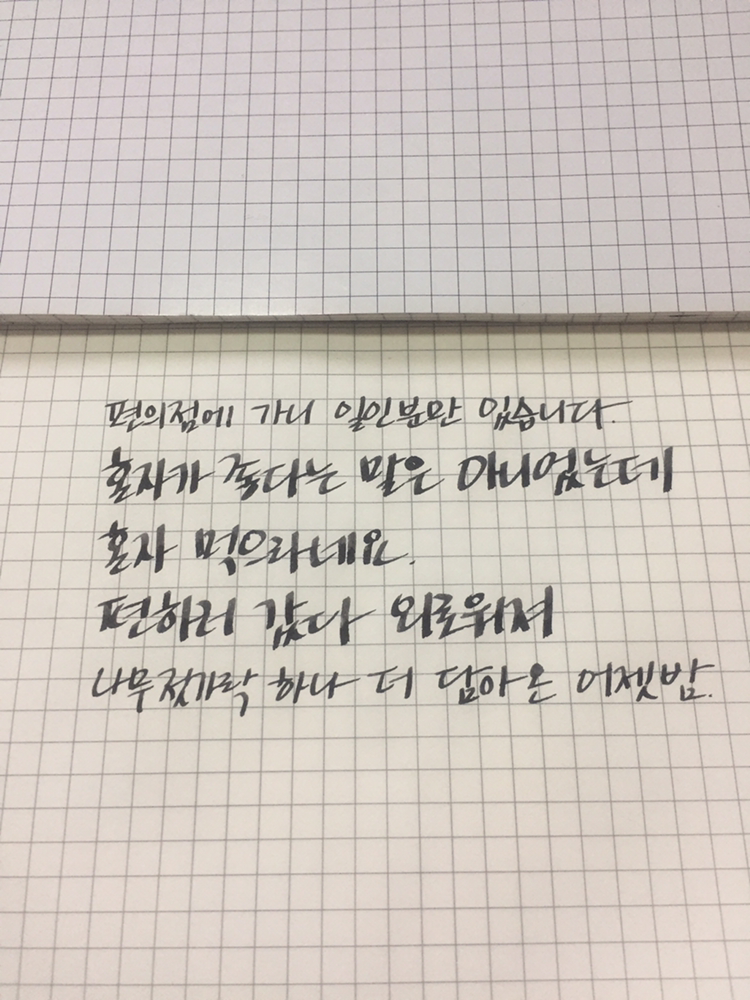 편의점에 가니 일인분만 있습니다.
혼자가 좋다는 말은 아니었는데
혼자 먹으라네요.
편하러 갔다 외로워져
나무젓가락 하나 더 담아온 어젯밤.